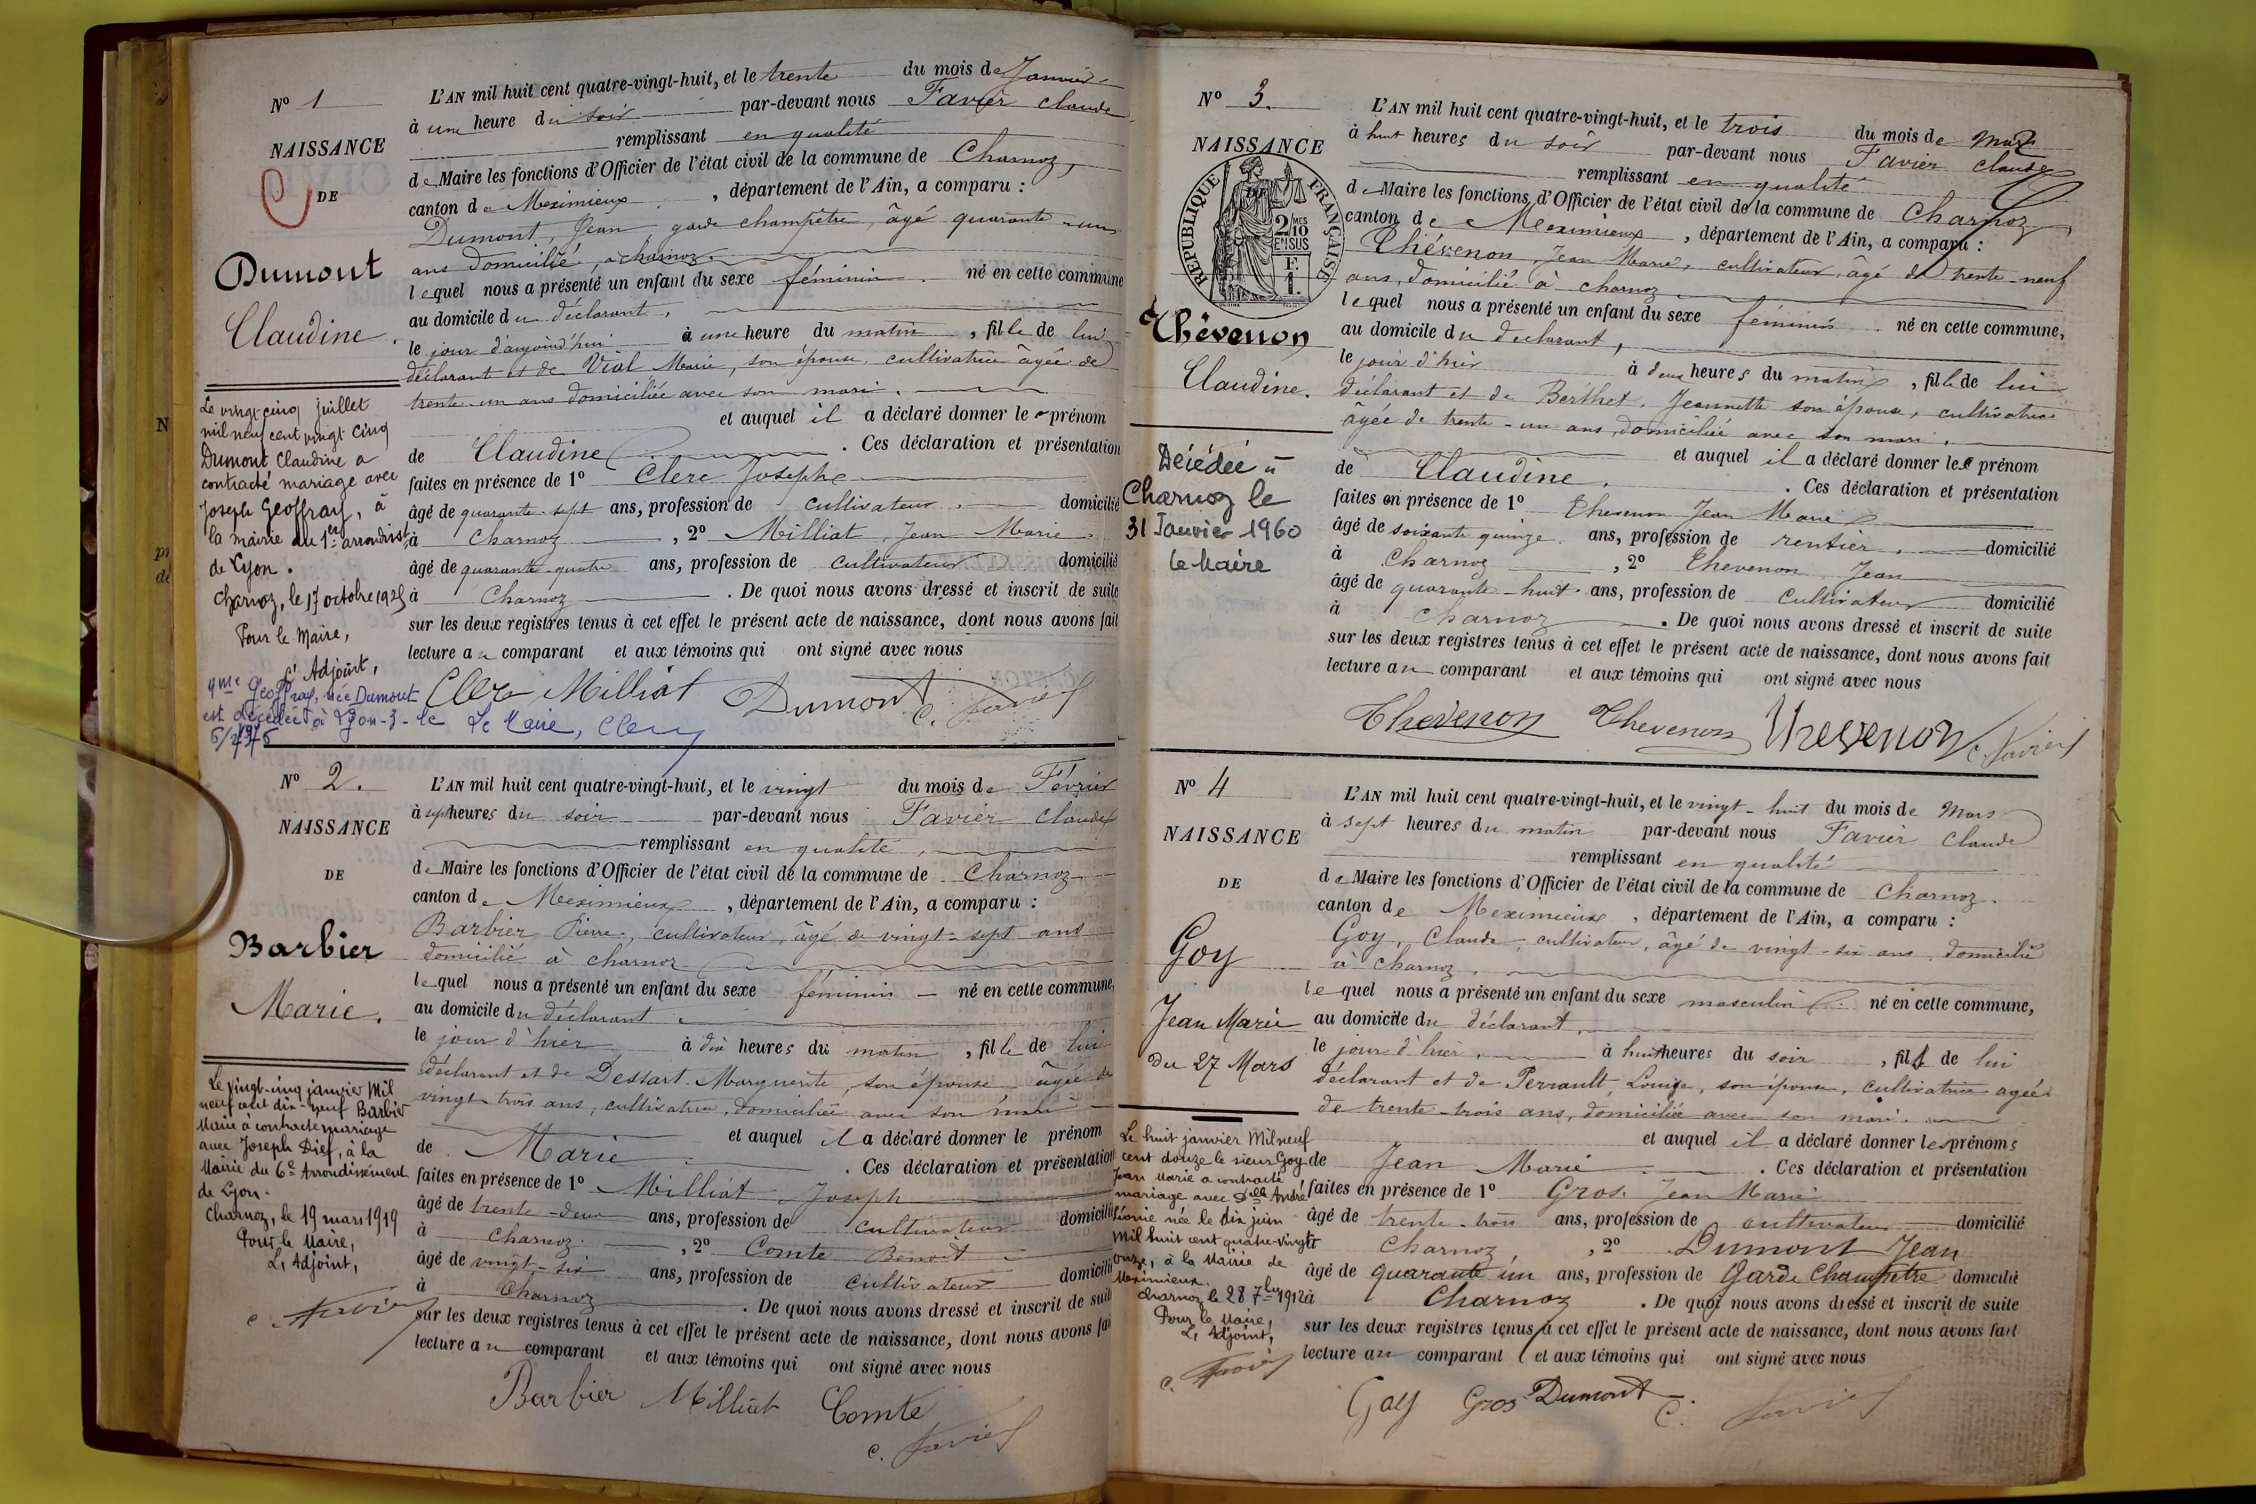 N° 1
NAISSANCE
DE
Dumont
Claudine.
Le vingt cinq Juillet
mil neuf cent vingt cinq
Dumont Claudine a
contracté mariage avec
Joseph Geoffray, à
la mairie du 1er arrondisst
de Lyon.
Charnoz, le 17 octobre 1925
Pour le Maire,
L'Adjoint,
Mme Geoffray, née Dumont
est décédée à Lyon-3- le
Le Maire,
L'AN mil huit cent quatre-vingt-huit, et le trente du mois de Janvier
à une heure du soir par-devant nous Favier Claude
remplissant en qualité
de Maire les fonctions d'Officier de l'état civil de la commune de Charnoz,
canton de Meximieux, département de l'Ain, a comparu :
Dumont, Jean, garde champêtre, âgé quarante-un
ans domicilié, à charnoz.
lequel nous a présenté un enfant du sexe féminin né en cette commune
au domicile du déclarant,
le jour d'aujourd'hui à une heure du matin, fille de lui
déclarant et de Vial Marie, son épouse, cultivatrice âgée de
trente-un ans domiciliée avec son mari.
et auquel il a déclaré donner le prénom
de Claudine. Ces déclaration et présentation
faites en présence de 1° Clerc Joseph
âgé de quarante-sept ans, profession de cultivateur domicilié
à Charnoz, 2° Milliat, Jean Marie
âgé de quarante-quatre ans, profession de cultivateur domicilié
à Charnoz. De quoi nous avons dressé et inscrit de suite
sur les deux registres tenus à cet effet le présent acte de naissance, dont nous avons fait
lecture au comparant et aux témoins qui ont signé avec nous
Clerc Milliat Dumont C. Favier
N° 2.
NAISSANCE
DE
Barbier
Marie.
Le vingt-cinq janvier Mil
neuf cent dix-neuf Barbier
Marie a contracté mariage
avec Joseph Dief, à la
Mairie du 6e Arrondissement
de Lyon.
Charnoz, le 19 mars 1919
Pour le Maire,
L'Adjoint,
C. Favier
L'AN mil huit cent quatre-vingt-huit, et le vingt du mois de Février
à sept heures du soir par-devant nous Favier Claude
remplissant en qualité,
de Maire les fonctions d'Officier de l'état civil de la commune de Charnoz
canton de Meximieux, département de l'Ain, a comparu :
Barbier, Pierre, cultivateur, âgé de vingt-sept ans
domicilié à charnoz
lequel nous a présenté un enfant du sexe féminin né en cette commune,
au domicile du déclarant
le jour d'hier à dix heures du matin, fille de lui
déclarant et de Dessart Marguerite, son épouse âgée de
vingt-trois ans, cultivatrice, domiciliée avec son mari
et auquel il a déclaré donner le prénom
de Marie. Ces déclaration et présentation
faites en présence de 1° Milliat Joseph
âgé de trente-deux ans, profession de cultivateur domicilié
à Charnoz, 2° Comte Benoit
âgé de vingt-six ans, profession de cultivateur domicilié
à Charnoz. De quoi nous avons dressé et inscrit de suite
sur les deux registres tenus à cet effet le présent acte de naissance, dont nous avons fai
lecture au comparant et aux témoins qui ont signé avec nous
Barbier Milliat Comte
C. Favier
N° 3.
NAISSANCE
DE
REPUBLIQUE FRANÇAISE
2/10 MES
EN SUS
F.
1.
Thévenon
Claudine.
Décédée à
Charnoz le
31 Janvier 1960
Le Maire
L'AN mil huit cent quatre-vingt-huit, et le trois du mois de Mars
à huit heures du soir par-devant nous Favier Claude
remplissant en qualité
de Maire les fonctions d'Officier de l'état civil de la commune de Charnoz
canton de Meximieux, département de l'Ain, a comparu :
Thévenon, Jean Marie, cultivateur, âgé de trente-neuf
ans, domicilié à charnoz
lequel nous a présenté un enfant du sexe féminin né en cette commune,
au domicile du déclarant,
le jour d'hier à deux heures du matin, fille de lui
déclarant et de Berthet, Jeannette son épouse, cultivatrice
âgée de trente-un ans, domiciliée avec son mari,
et auquel il a déclaré donner le prénom
de Claudine. Ces déclaration et présentation
faites en présence de 1° Thevenon Jean Marie
âgé de soixante quinze ans, profession de rentier domicilié
à Charnoz, 2° Thevenon Jean
âgé de quarante-huit ans, profession de cultivateur domicilié
à Charnoz. De quoi nous avons dressé et inscrit de suite
sur les deux registres tenus à cet effet le présent acte de naissance, dont nous avons fait
lecture au comparant et aux témoins qui ont signé avec nous
Thevenon Thevenon Thevenon C. Favier
N° 4
NAISSANCE
DE
Goy
Jean Marie
Du 27 Mars
Le huit janvier Mil neuf
cent douze le sieur Goy
Jean Marie a contracté
mariage avec Dlle André
Léonie née le dix juin
Mil huit cent quatre-vingt
onze, à la Mairie de
Meximieux.
Charnoz le 28 7bre 1912
Pour le Maire,
L'Adjoint,
C. Favier
L'AN mil huit cent quatre-vingt-huit, et le vingt-huit du mois de Mars
à sept heures du matin par-devant nous Favier Claude
remplissant en qualité
de Maire les fonctions d'Officier de l'état civil de la commune de Charnoz.
canton de Meximieux, département de l'Ain, a comparu :
Goy, Claude, cultivateur, âgé de vingt-six ans, domicilié
à charnoz,
lequel nous a présenté un enfant du sexe masculin né en cette commune,
au domicile du déclarant,
le jour d'hier, à huit heures du soir, fils de lui
déclarant et de Perrault, Louise, son épouse, cultivatrice agée
de trente-trois ans, domiciliée avec son mari.
et auquel il a déclaré donner les prénoms
de Jean Marie. Ces déclaration et présentation
faites en présence de 1° Gros Jean Marie
âgé de trente-trois ans, profession de cultivateur domicilié
à Charnoz, 2° Dumont Jean
âgé de quarante un ans, profession de Garde Champêtre domicilié
à Charnoz. De quoi nous avons dressé et inscrit de suite
sur les deux registres tenus à cet effet le présent acte de naissance, dont nous avons fait
lecture au comparant et aux témoins qui ont signé avec nous
Goy Gros Dumont C. Favier